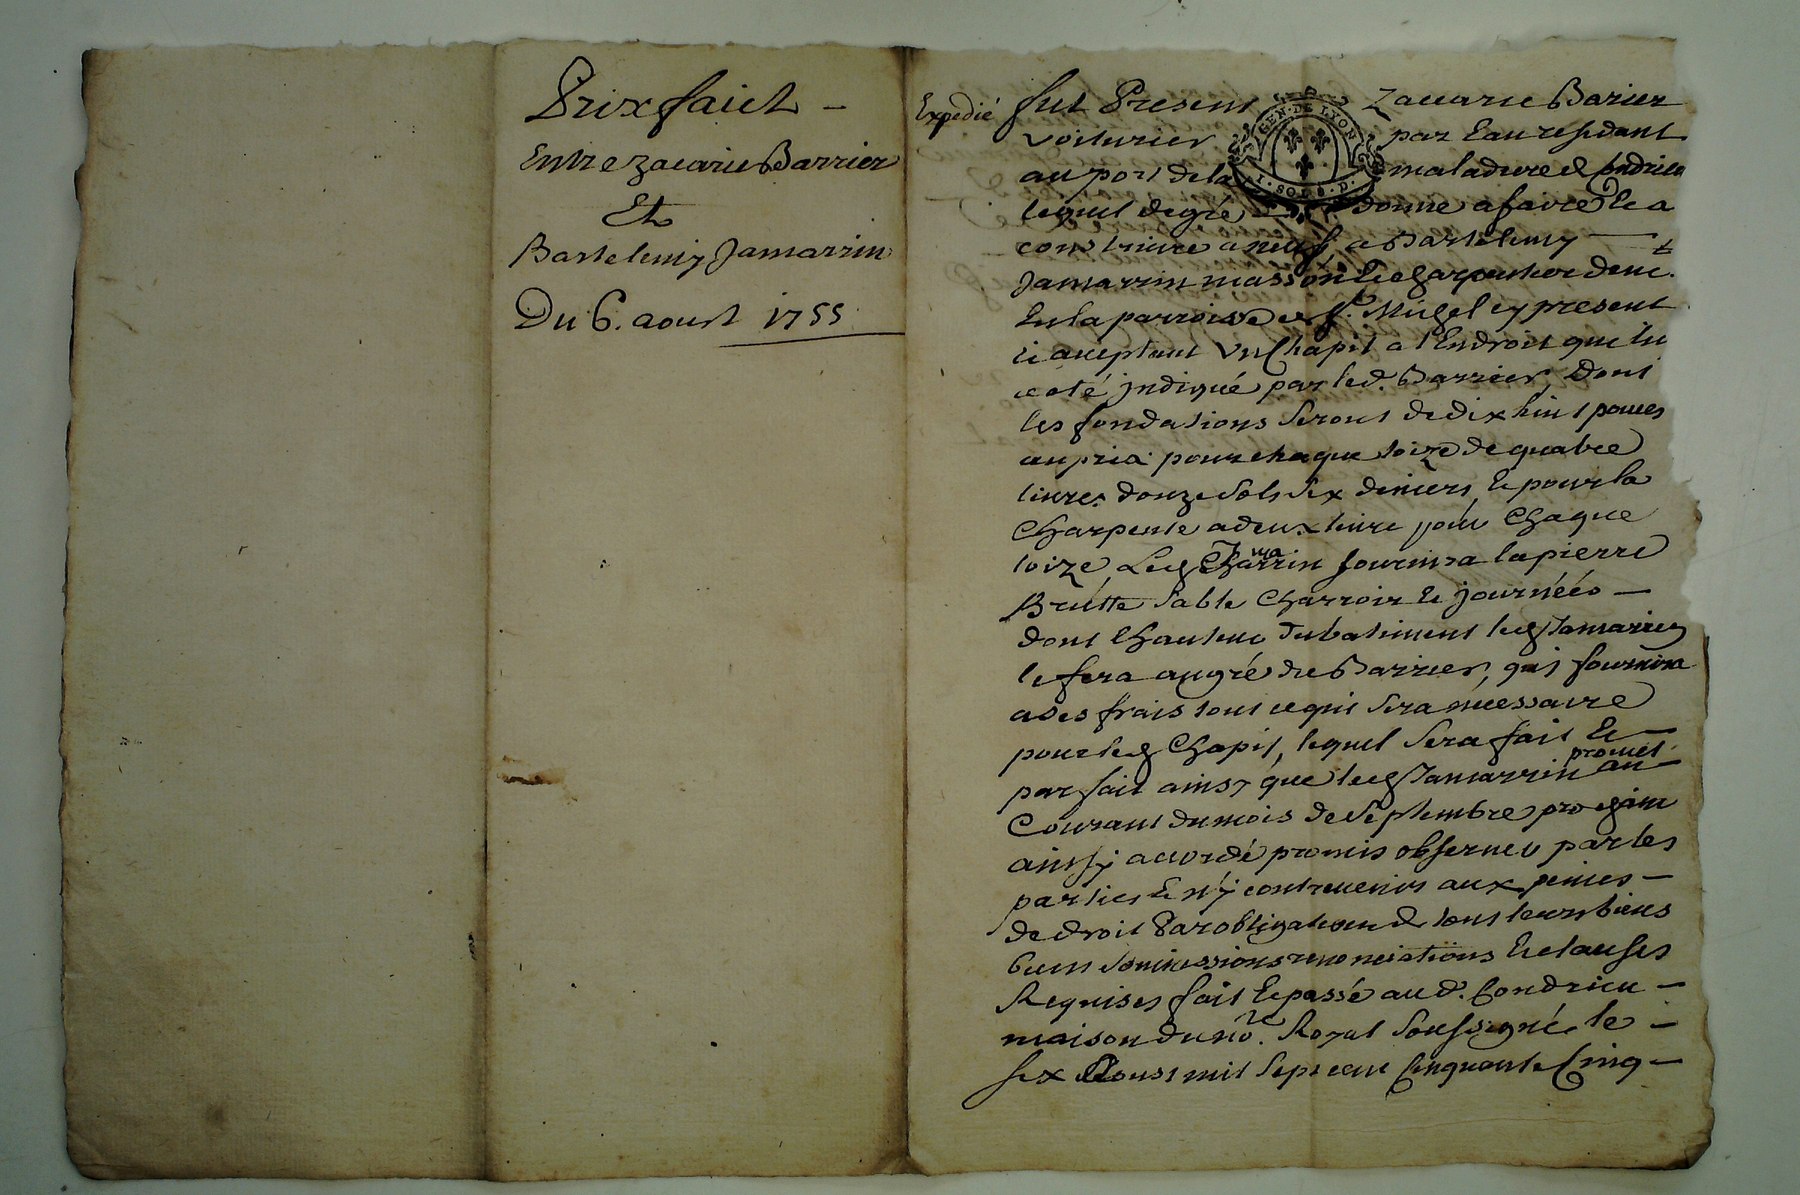 Prixfaict –
Entre zacarie Barrier
Et
Bartelemy Jamarrin
Du 6. aoust 1755
Expedié
GEN. DE LYON
I. SOLS. D.
fut Present Zacarie Barier
voiturier par Eau residant
au port de la maladiere d
lequel de gré donne a faire Et a
construire a neuf, a Bartelemy –
Jamarrin masson Et charpentier dem.t
En la parroisse de St. Michel cy present
Et aceptant Un Chapit a l'Endroit que lui
a eté jndiqué par led. Barrier, Dont
les fondations seront de dix huit pouces
au prix pour chaque toize de quatre
livres douze sols six deniers, Et pour la
Charpente a deux livre pour Chaque
toize, Led Jamarrin fournira la pierre
Brutte sable Charroir Et journéés –
dont l'hauteur du batiment led Jamarrin
le fera au gré du Barrier, qui fournira
a ses frais tout ce qui sera nécessaire
pour led Chapit, lequel sera fait Et –
parfait ainsy que led Jamarrin promet au –
Courant du mois de septembre prochain
ainsy accordé promis observer par les
parties Et n'y contrevenir aux peines –
de droit Par obligation de tous leurs biens
soumissions renonciations Et clauses
Requises fait Et passé aud. Condrieu –
maison du no.re Royal soussigné, le –
six Aoust mil sept cent Cinquante Cinq –